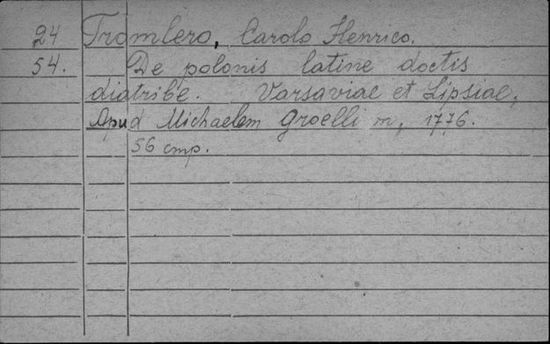 24 Tromlero, Carolo Henrico.
54. De polonis latine doctis
diatribe. Varsaviae et Lipsiae,
Apud Michaelem Groelli m, 1776.
56 стр.